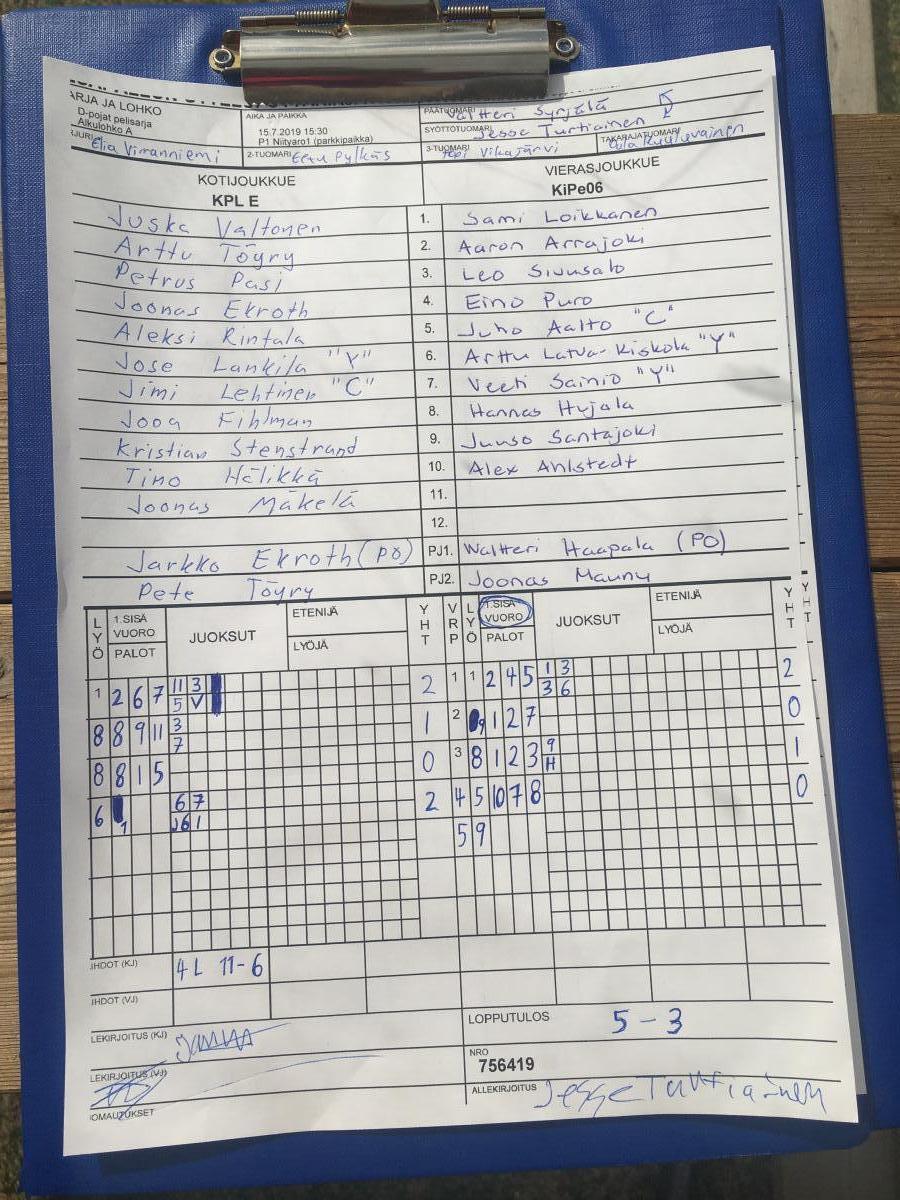 ARJA JA LOHKO
D-pojat pelisarja
Alkulohko A
AIKA JA PAIKKA
15.7.2019 15:30
P1 Niityaro1 (parkkipaikka)
PÄÄTUOMARI Valtteri Syrjälä
SYÖTTÖTUOMARI Jesse Turtiainen
Elia Viranniemi
2-TUOMARI Eetu Pylkäs
3-TUOMARI Vikajärvi
TAKARAJATUOMARI
KOTIJOUKKUE
KPL E
VIERASJOUKKUE
KiPe06
Juska Valtonen 1. Sami Loikkanen
Arttu Töyry 2. Aaron Arrajoki
Petrus Pasi 3. Leo Sivusalo
Joonas Ekroth 4. Eino Puro
Aleksi Rintala 5. Juho Aalto "C"
Jose Lankila "Y" 6. Arttu Latva-Kiskola "Y"
Jimi Lehtinen "C" 7. Veeti Sainio "Y"
Jooa Fihlman 8. Hannas Hujala
Kristian Stenstrand 9. Juuso Santajoki
Tino Hälikkä 10. Alex Ahlstedt
Joonas Mäkelä 11.
12.
Jarkko Ekroth (PO) PJ1. Waltteri Haapala (PO)
Pete Töyry PJ2. Joonas Maunu
LYÖ 1.SISÄ VUORO PALOT JUOKSUT ETENIJÄ LYÖJÄ YHT VRP LYÖ 1.SISÄ VUORO PALOT JUOKSUT ETENIJÄ LYÖJÄ YHT YHT
1 2 6 7 11 3 2 1 1 2 4 5 1 3 2
5 V 3 6
8 8 9 11 3 1 2 9 1 2 7 0
7
8 8 1 5 0 3 8 1 2 3 9 1
H
6 1 6 7 2 4 5 10 7 8 0
J6 1
5 9
IHDOT (KJ) 4L 11-6
IHDOT (VJ)
LEKIRJOITUS (KJ)
LOPPUTULOS 5-3
LEKIRJOITUS (VJ)
NRO
756419
ALLEKIRJOITUS Jesse Turtiainen
IOMAUTUKSET